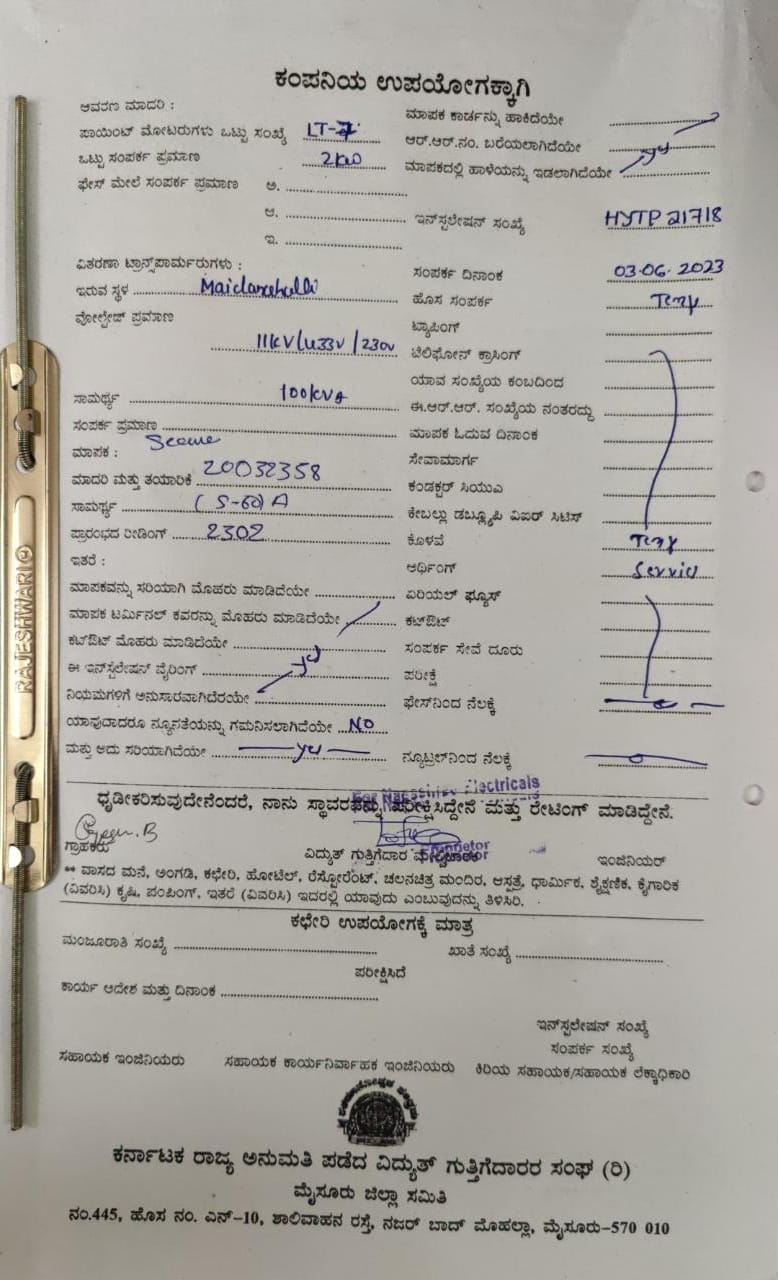 ಕಂಪನಿಯ ಉಪಯೋಗಕ್ಕಾಗಿ
ಆವರಣ ಮಾದರಿ :
ಪಾಯಿಂಟ್ ಮೋಟರುಗಳು ಒಟ್ಟು ಸಂಖ್ಯೆ LT-7
ಒಟ್ಟು ಸಂಪರ್ಕ ಪ್ರಮಾಣ 2kw
ಫೇಸ್ ಮೇಲೆ ಸಂಪರ್ಕ ಪ್ರಮಾಣ ಅ.
ಆ.
ಇ.
ವಿತರಣಾ ಟ್ರಾನ್ಸ್‌ಪಾರ್ಮರುಗಳು :
ಇರುವ ಸ್ಥಳ Maidanahalli
ವೋಲ್ಟೇಜ್ ಪ್ರಮಾಣ
11kV/433V/230V
ಸಾಮರ್ಥ್ಯ 100kVA
ಸಂಪರ್ಕ ಪ್ರಮಾಣ
ಮಾಪಕ : Secure
ಮಾದರಿ ಮತ್ತು ತಯಾರಿಕೆ 20032358
ಸಾಮರ್ಥ್ಯ (5-60) A
ಪ್ರಾರಂಭದ ರೀಡಿಂಗ್ 2302
ಇತರೆ :
ಮಾಪಕವನ್ನು ಸರಿಯಾಗಿ ಮೊಹರು ಮಾಡಿದೆಯೇ
ಮಾಪಕ ಟರ್ಮಿನಲ್ ಕವರನ್ನು ಮೊಹರು ಮಾಡಿದೆಯೇ
ಕಟ್‌ಔಟ್ ಮೊಹರು ಮಾಡಿದೆಯೇ
ಈ ಇನ್‌ಸ್ಟಲೇಷನ್ ವೈರಿಂಗ್ yes
ನಿಯಮಗಳಿಗೆ ಅನುಸಾರವಾಗಿದೆರಯೇ
ಯಾವುದಾದರೂ ನ್ಯೂನತೆಯನ್ನು ಗಮನಿಸಲಾಗಿದೆಯೇ NO
ಮತ್ತು ಅದು ಸರಿಯಾಗಿದೆಯೇ yes
ಮಾಪಕ ಕಾರ್ಡನ್ನು ಹಾಕಿದೆಯೇ
ಆರ್.ಆರ್.ನಂ. ಬರೆಯಲಾಗಿದೆಯೇ
ಮಾಪಕದಲ್ಲಿ ಹಾಳೆಯನ್ನು ಇಡಲಾಗಿದೆಯೇ yes
ಇನ್‌ಸ್ಟಲೇಷನ್ ಸಂಖ್ಯೆ HYTP 21718
ಸಂಪರ್ಕ ದಿನಾಂಕ 03.06.2023
ಹೊಸ ಸಂಪರ್ಕ Temp
ಟ್ಯಾಪಿಂಗ್
ಟೆಲಿಫೋನ್ ಕ್ರಾಸಿಂಗ್
ಯಾವ ಸಂಖ್ಯೆಯ ಕಂಬದಿಂದ
ಈ.ಆರ್.ಆರ್. ಸಂಖ್ಯೆಯ ನಂತರದ್ದು
ಮಾಪಕ ಓದುವ ದಿನಾಂಕ
ಸೇವಾಮಾರ್ಗ
ಕಂಡಕ್ಟರ್ ಸಿಯುವಿ
ಕೇಬಲ್ಲು ಡಬ್ಲ್ಯೂಪಿ ವಿಐರ್ ಸಿಟಿಸ್
ಕೊಳವೆ Temp
ಅರ್ಥಿಂಗ್ Service
ಏರಿಯಲ್ ಫ್ಯೂಸ್
ಕಟ್‌ಔಟ್
ಸಂಪರ್ಕ ಸೇವೆ ದೂರು
ಪರೀಕ್ಷೆ
ಫೇಸ್‌ನಿಂದ ನೆಲಕ್ಕೆ
ನ್ಯೂಟ್ರಲ್‌ನಿಂದ ನೆಲಕ್ಕೆ
Electricals
ಧೃಡೀಕರಿಸುವುದೇನೆಂದರೆ, ನಾನು ಸ್ಥಾವರವನ್ನು ಪರೀಕ್ಷಿಸಿದ್ದೇನೆ ಮತ್ತು ರೇಟಿಂಗ್ ಮಾಡಿದ್ದೇನೆ.
ಗ್ರಾಹಕರು ವಿದ್ಯುತ್ ಗುತ್ತಿಗೆದಾರ ಮೇಲ್ವಿಚಾರಕ ಇಂಜಿನಿಯರ್
** ವಾಸದ ಮನೆ, ಅಂಗಡಿ, ಕಛೇರಿ, ಹೋಟೆಲ್, ರೆಸ್ಟೋರೆಂಟ್, ಚಲನಚಿತ್ರ ಮಂದಿರ, ಆಸ್ಪತ್ರೆ, ಧಾರ್ಮಿಕ, ಶೈಕ್ಷಣಿಕ, ಕೈಗಾರಿಕ
(ವಿವರಿಸಿ) ಕೃಷಿ, ಪಂಪಿಂಗ್, ಇತರೆ (ವಿವರಿಸಿ) ಇದರಲ್ಲಿ ಯಾವುದು ಎಂಬುವುದನ್ನು ತಿಳಿಸಿರಿ.
ಕಛೇರಿ ಉಪಯೋಗಕ್ಕೆ ಮಾತ್ರ
ಮಂಜೂರಾತಿ ಸಂಖ್ಯೆ ಖಾತೆ ಸಂಖ್ಯೆ
ಪರೀಕ್ಷಿಸಿದೆ
ಕಾರ್ಯ ಆದೇಶ ಮತ್ತು ದಿನಾಂಕ
ಇನ್‌ಸ್ಟಲೇಷನ್ ಸಂಖ್ಯೆ
ಸಂಪರ್ಕ ಸಂಖ್ಯೆ
ಸಹಾಯಕ ಇಂಜಿನಿಯರು ಸಹಾಯಕ ಕಾರ್ಯನಿರ್ವಾಹಕ ಇಂಜಿನಿಯರು ಕಿರಿಯ ಸಹಾಯಕ/ಸಹಾಯಕ ಲೆಕ್ಕಾಧಿಕಾರಿ
ಕರ್ನಾಟಕ ರಾಜ್ಯ ಅನುಮತಿ ಪಡೆದ ವಿದ್ಯುತ್ ಗುತ್ತಿಗೆದಾರರ ಸಂಘ (ರಿ)
ಮೈಸೂರು ಜಿಲ್ಲಾ ಸಮಿತಿ
ನಂ.445, ಹೊಸ ನಂ. ಎನ್-10, ಶಾಲಿವಾಹನ ರಸ್ತೆ, ನಜರ್ ಬಾದ್ ಮೊಹಲ್ಲಾ, ಮೈಸೂರು-570 010
RAJESHWARI